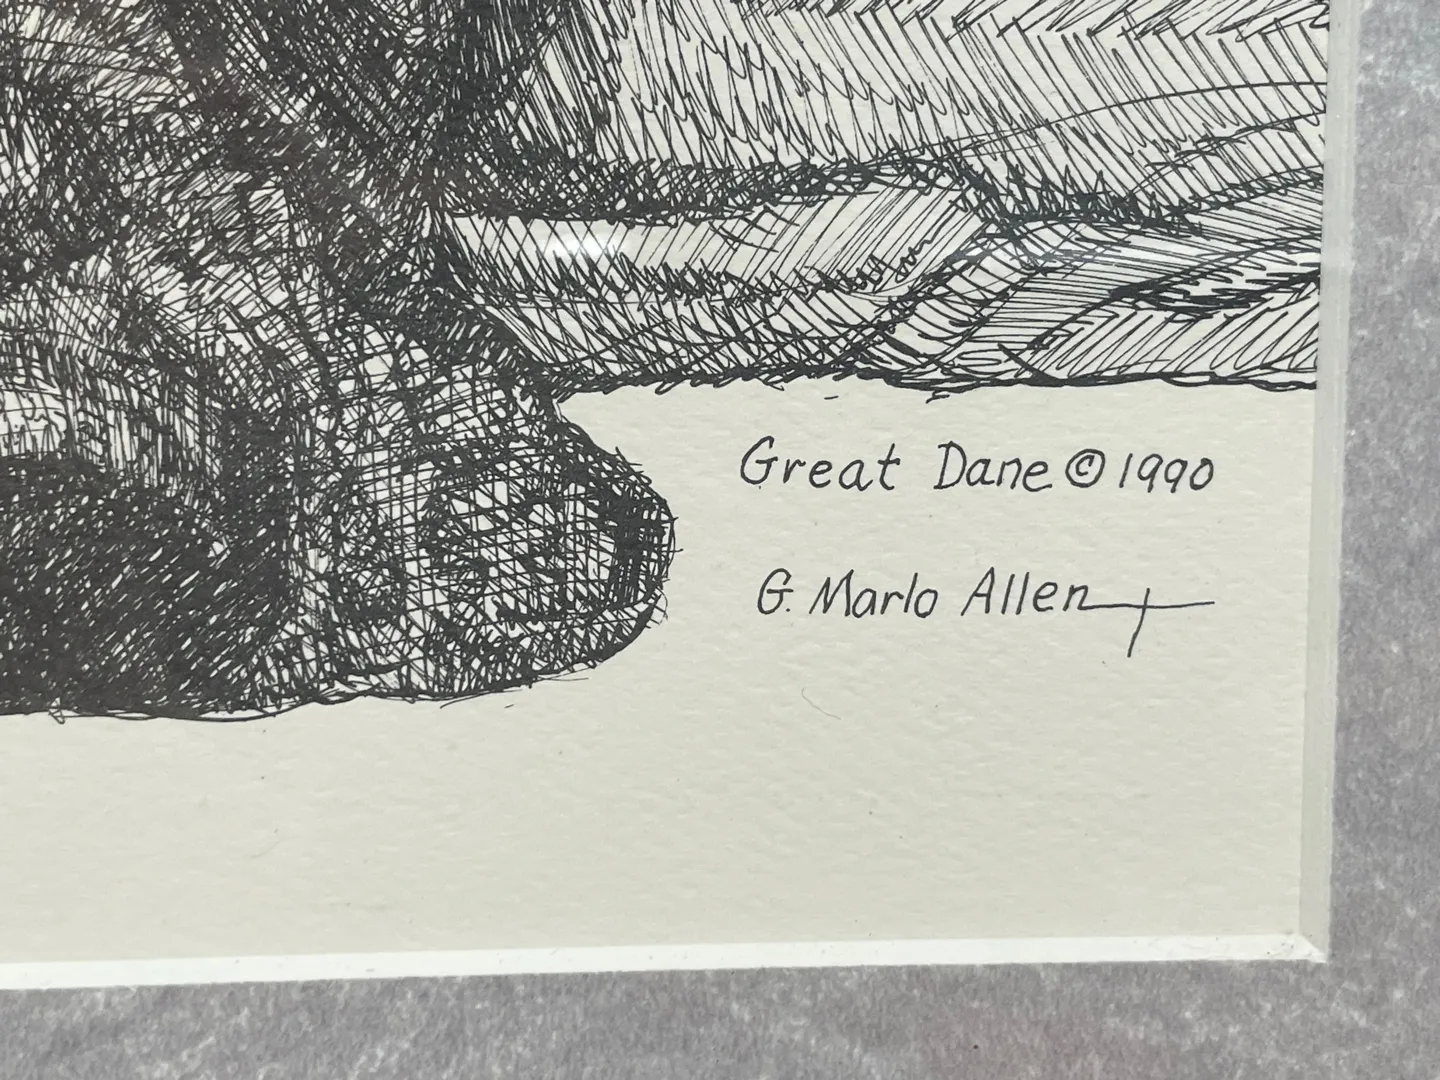 Great Dane © 1990
G. Marlo Allen